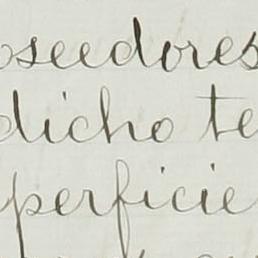 oseedores
dicho te
perficie